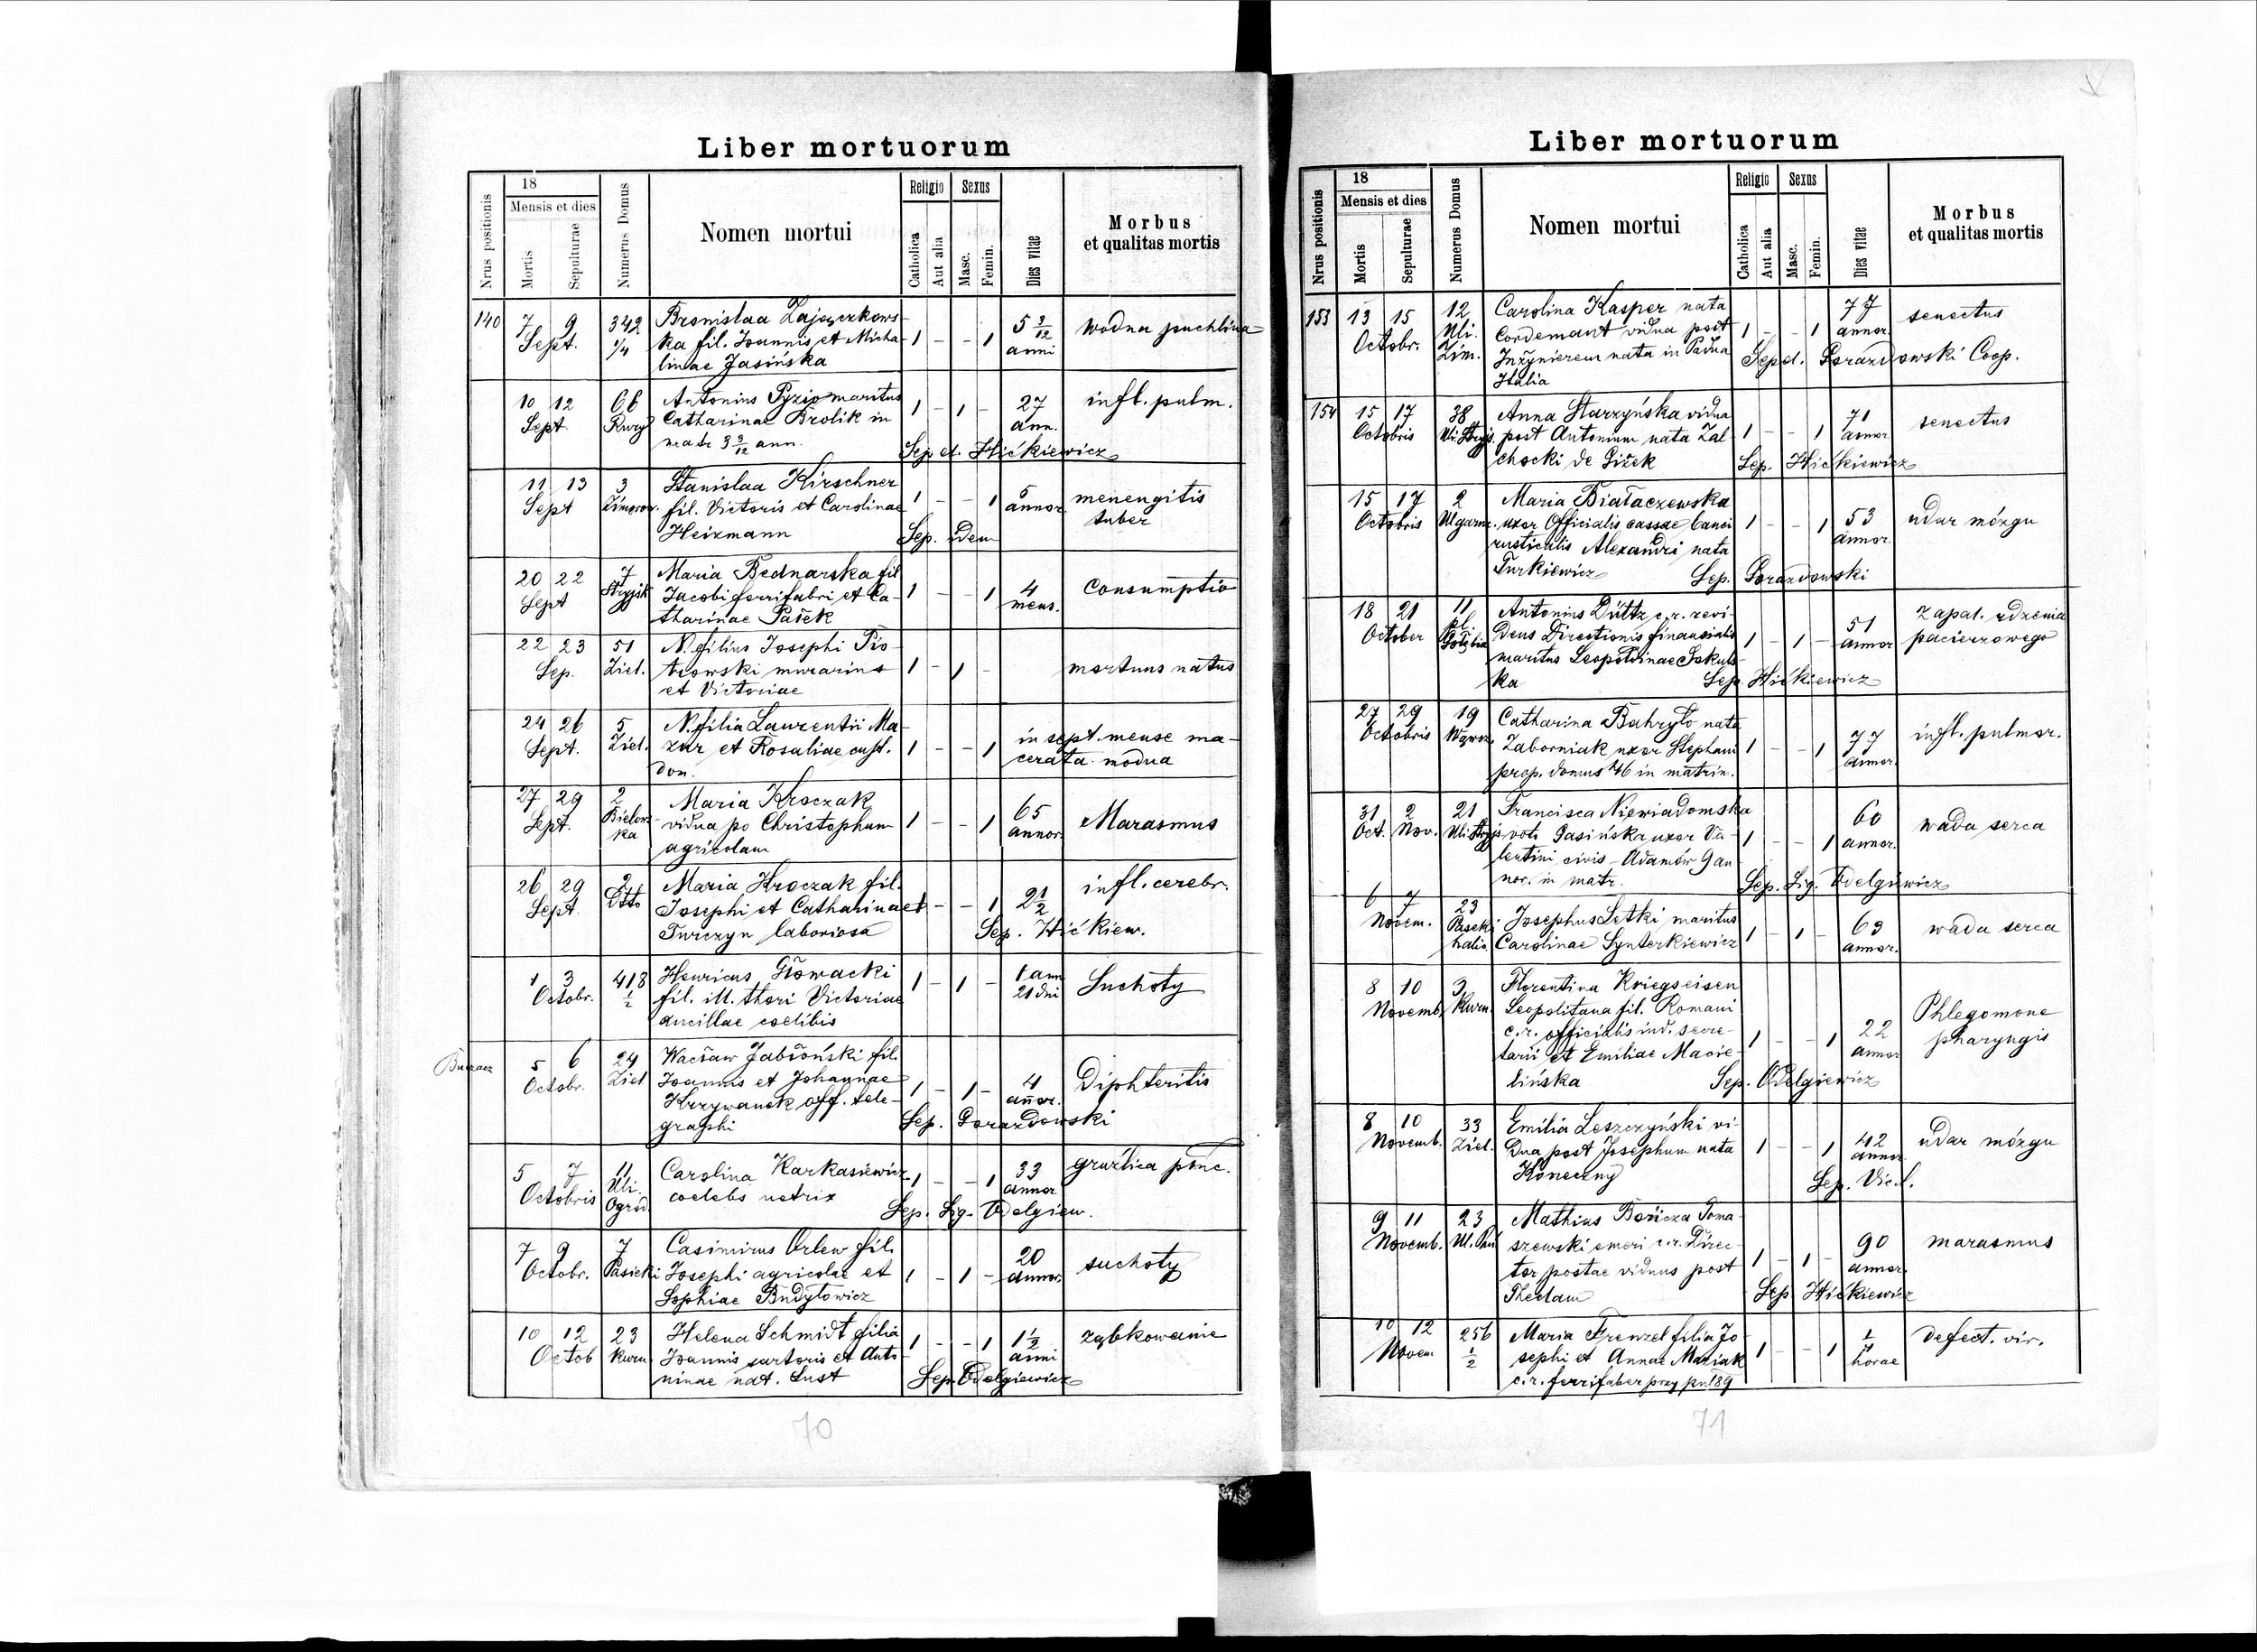 Liber mortuorum
Nrus positionis
18
Mensis et dies
Mortis
Sepulturae
Numerus Domus
Nomen mortui
Religio
Catholica
Aut alia
Sexus
Masc.
Femin.
Dies vitae
Morbus
et qualitas mortis
140 7 9 Sept. 342 1/4
Bronislaa Zajączkows-
ka fil. Joannis et Micha-
linae Jasińska
1 - - 1 5 3/12 anni
wodna puchlina
10 12 Sept 66
Antonius Pyzio maritus
Catharinae Brolik in
matr 3 3/12 ann.
1 - 1 - 27 ann.
infl. pulm.
Sep. d. Hićkiewicz
11 13 Sept 3 Zimorow.
Stanislaa Kirschner
fil. Victoris et Carolinae
Heizmann
1 - - 1 5 annor.
menengitis
tuber
Sep. idem
20 22 Sept 7 Stryjsk
Maria Bednarska fil
Jacobi ferrifabri et Ca-
tharinae Pašek
1 - - 1 4 mens.
Consumptio
22 23 Sep. 51 Ziel.
N. filius Josephi Pio-
trowski murarius
et Victoriae
1 - 1 -
mortuus natus
24 26 Sept. 5 Ziel.
N. filia Laurentii Ma-
zur et Rosaliae cust.
dom.
1 - - 1
in sept. mense ma-
cerata modua
27 29 Sept. 2 Bielow-
ska
Maria Kroczak
vidua po Christophum
agricolam
1 - - 1 65 annor
Marasmus
26 29 Sept. 2 Ditto
Maria Kroczak fil.
Josephi et Catharinae
Turczyn laboriosa
1 - - 1 2 1/2
infl. cerebr.
Sep. Hićkiew.
1 3 Octobr. 418 1/2
Henricus Głowacki
fil. ill. thori Victoriae
ancillae coelibis
1 - 1 - 1 ann 21 dni
Suchoty
5 6 Octobr. 24 Ziel
Wacław Jabłoński fil.
Joannis et Johannae
Krzywanek off. tele-
graphi
1 - 1 - 4 annor.
Diphteritis
Sep. Gorazdowski
5 7 Octobris 11 Uli. Ogrod
Carolina Karkasiewicz
coelebs netrix
1 - - 1 33 annor
gruźlica płuc.
Sep. Sig. Odelgiew.
7 9 Octobr. 7 Pasieki
Casimirus Orlew fil.
Josephi agricolae et
Sophiae Budyłowicz
1 - 1 - 20 annor.
suchoty
10 12 Octob 23
Helena Schmidt filia
Joannis sartoris et Anto-
ninae nat. Lust
1 - - 1 1 1/2 anni
ząbkowanie
Sep. Odelgiewicz
70
Liber mortuorum
Nrus positionis
18
Mensis et dies
Mortis
Sepulturae
Numerus Domus
Nomen mortui
Religio
Catholica
Aut alia
Sexus
Masc.
Femin.
Dies vitae
Morbus
et qualitas mortis
153 13 15 Octobr. 12 Uli. Zim.
Carolina Kasper nata
Cordemant vidua post
Inżynierem nata in Padua
Italia
1 - - 1 77 annor
senectus
Sep d. Gorazdowski Coop.
154 15 17 Octobris 38 Uli. Stryjs.
Anna Starzyńska vidua
post Antonium nata Zal-
chocki de Giżek
1 - - 1 71 annor
senectus
Sep. Hićkiewicz
15 17 Octobris 2 Ul garnc.
Maria Białaczewska
uxor Officialis cassae banci
rusticalis Alexandri nata
Turkiewicz
1 - - 1 53 annor.
udar mózgu
Sep. Gorazdowski
18 21 October 11 pl. Gołębia
Antonius Dültz c.r. revi-
dens Directionis finansialis
maritus Leopoldinae Sokuls-
ka
1 - 1 - 51 annor
Zapal. rdzenia
pacierzowego
Sep. Hićkiewicz
27 29 Octobris 19 Wąwoz.
Catharina Bahryło nata
Zaborniak uxor Stephani
prop. domus 46 in matrim.
1 - - 1 77 annor.
infl. pulmor.
31 2 Oct. Nov. 21 Uli Stryjs
Francisca Niewiadomska
voto Jasińska uxor Va-
lentini civis - Adamów 9 an
nor. in matr.
1 - - 1 60 annor.
wada serca
Sep. Sig. Odelgiewicz
6 7 Novem. 23
Josephus Letki maritus
Carolinae Synterkiewicz
1 - 1 - 63 annor.
wada serca
8 10 Novemb. 3
Florentina Kriegseisen
Leopolitana fil. Romani
c.r. officialis ind. secre-
tarii et Emiliae Macie-
lińska
1 - - 1 22 annor
Phlegomone
pharyngis
Sep. Odelgiewicz
8 10 Novemb. 33 Ziel.
Emilia Leszczyński vi-
dua post Josephum nata
Koneczny
1 - - 1 42 annor
udar mózgu
Sep. Vid.
9 11 Novemb. 23
Mathias Bończa Toma-
szewski emeri c.r. Direc-
tor postae viduus post
Theclam
1 - 1 - 90 annor.
marasmus
Sep Hićkiewicz
10 12 Novem 256 1/2
Maria Frenzel filia Jo-
sephi et Annae Maziak
c.r. ferrifaber przy pul 89
1 - - 1 1/4 horae
defect. vir.
71